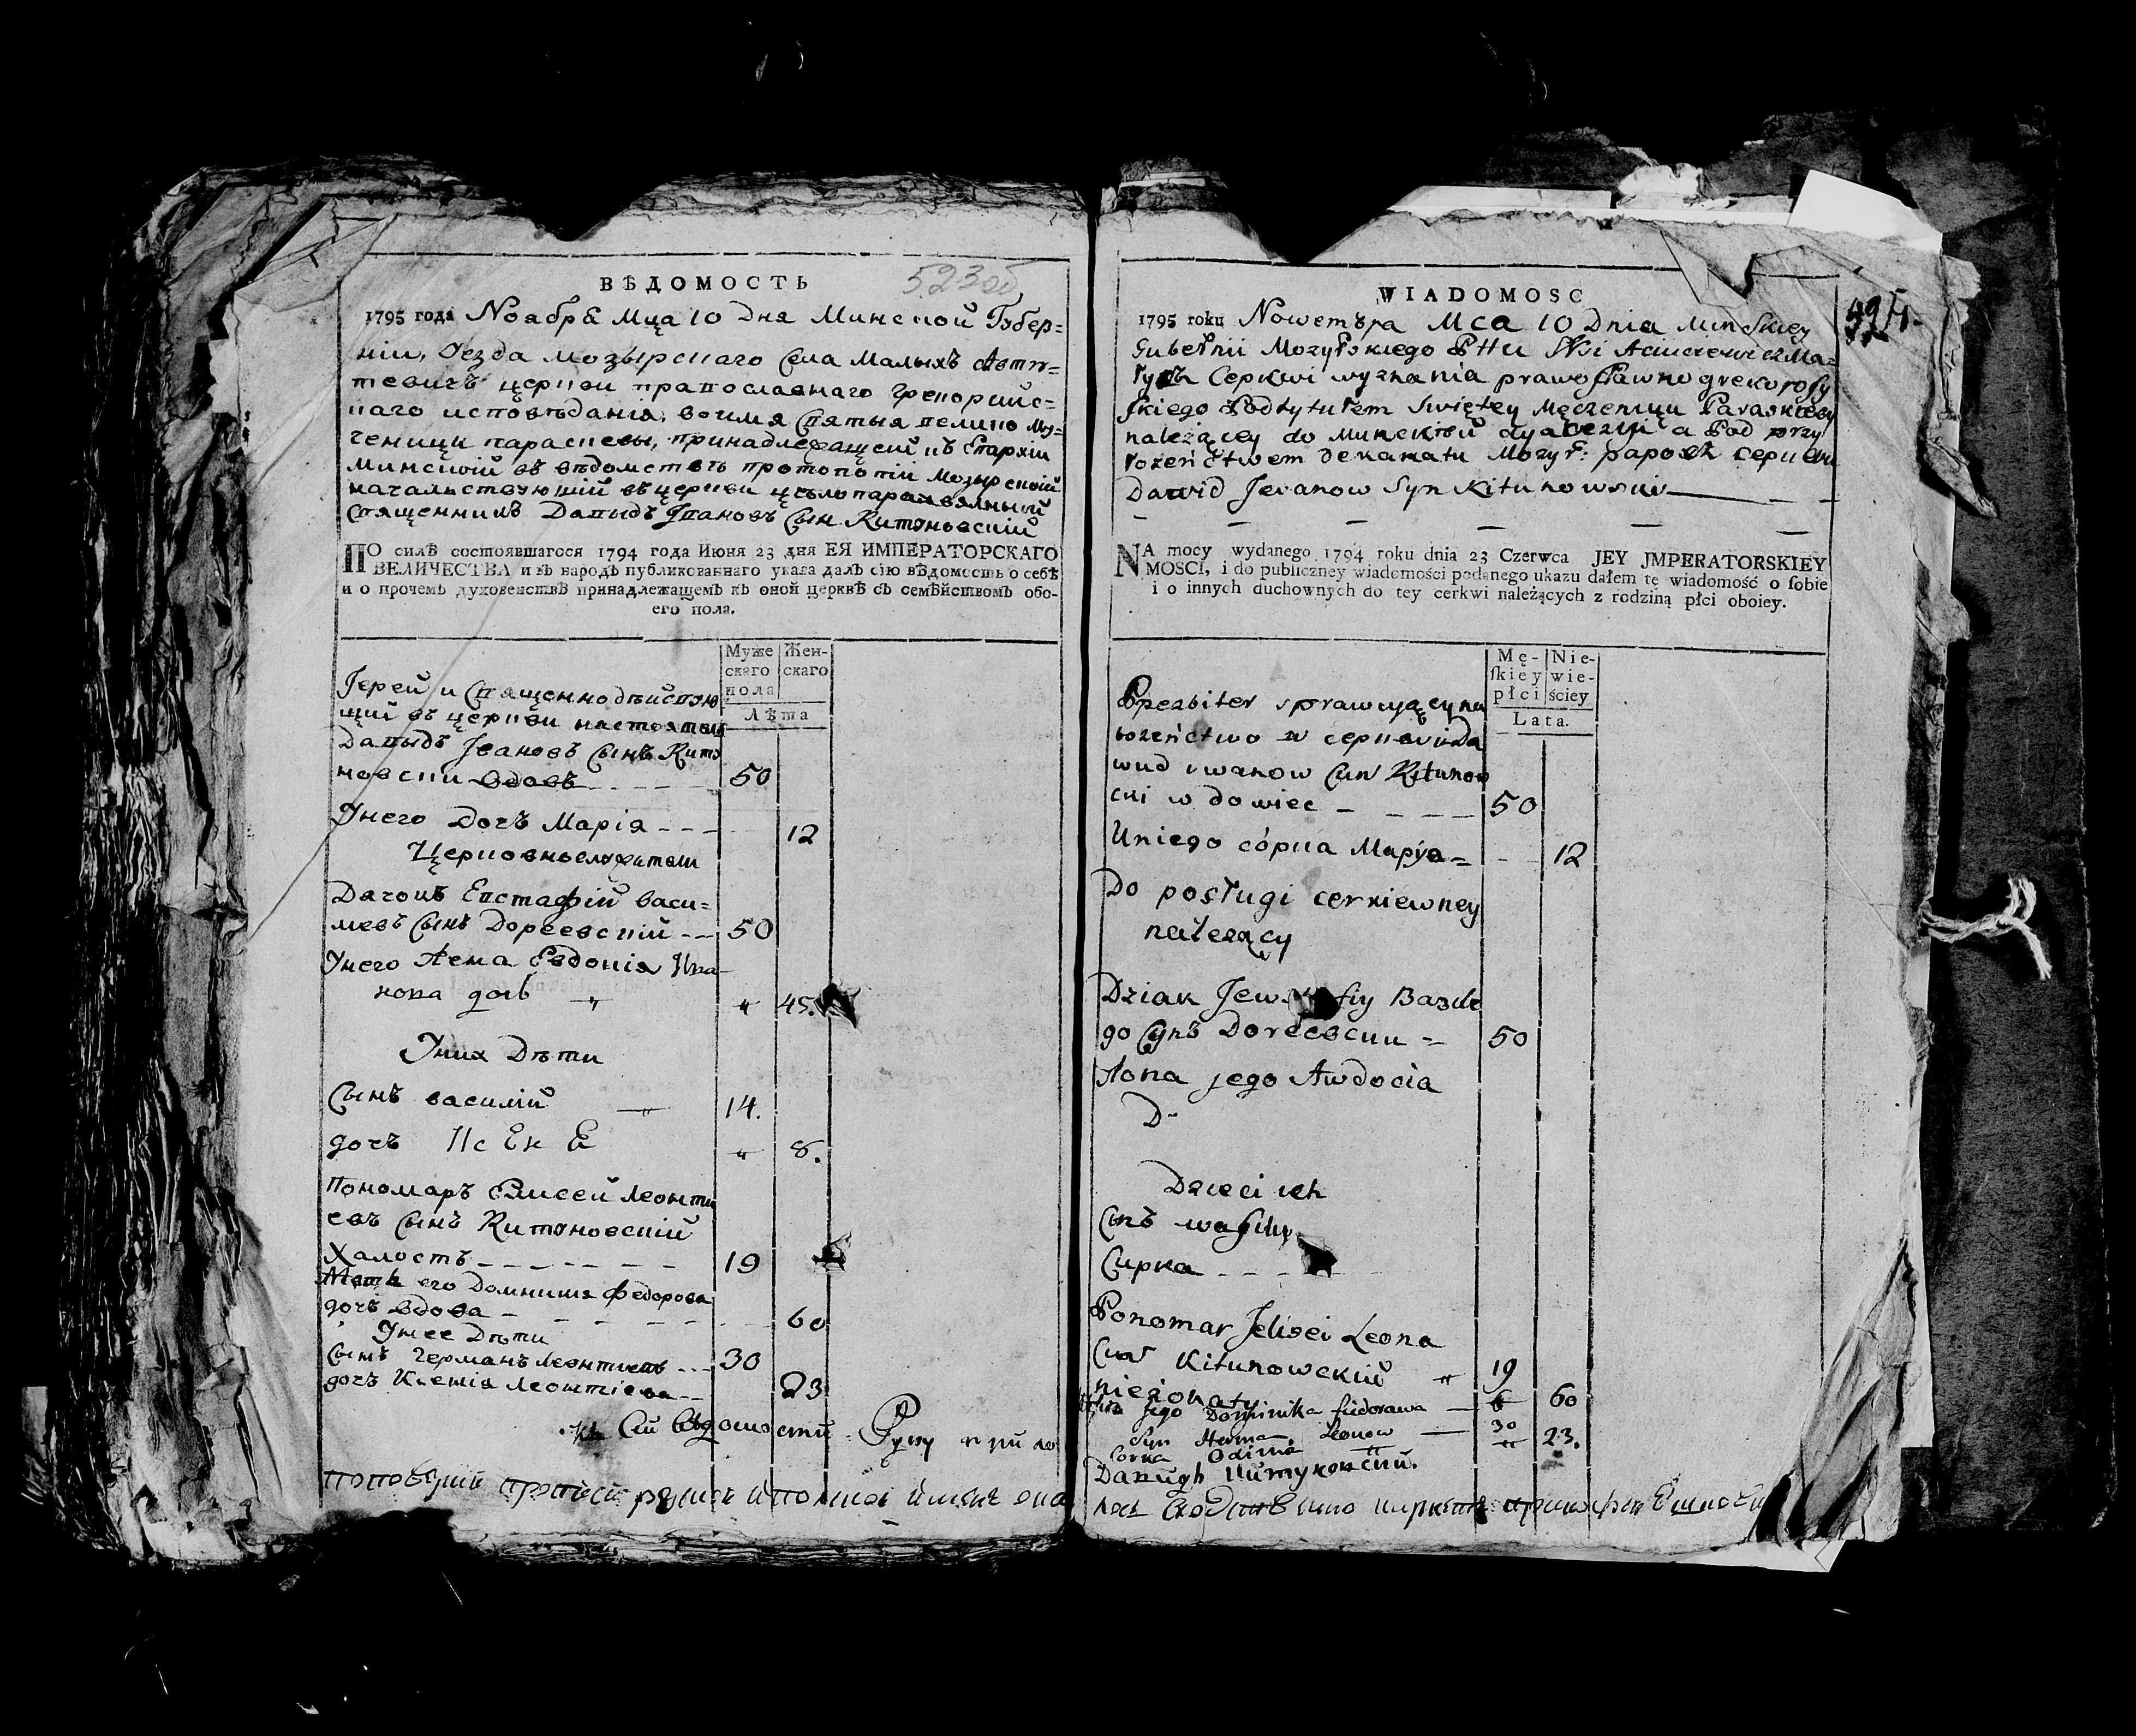 ВѢДОМОСТЬ
523 об
1795 года Ноабра Мца 10 Дня Минской Губер=
ніи, Уезда мозырскаго Села Малыхъ Автю=
тевичъ церкви православнаго грекорпійс=
каго исповѣданія, во имя Святыя велико Му=
ченици параскевы, принадлежащей къ Епархіи
Минскій въ вѣдомствѣ протопопіи Мозырской
начальствующій въ церкви
Священникъ Давыдъ Івановъ Сын Китуновскій
ПО силѣ состоявшагося 1794 года Июня 23 дня ЕЯ ИМПЕРАТОРСКАГО
ВЕЛИЧЕСТВА и въ народъ публикованнаго указа далъ сію вѣдомость о себѣ
и о прочемъ духовенствѣ принадлежащемъ къ оной церквѣ съ семѣйствомъ обо-
его пола.
Муже Жен-
скаго скаго
пола
Лѣта
Іерей и Священнодѣйствую
щий въ церкви настоятель
Давыдъ Івановъ Сынъ Киту
новски вдовъ 50
Унего дочъ Марія 12
Церковнослужители
Дячокъ Евстафій васи=
левъ Сынъ Дореевскій 50
Унего Жена Евдокія Ива-
нова дочь 45.
Уних Дѣти
Сынъ василій 14.
дочъ 8.
Пономаръ Елисей Леонти
евъ Сынъ Китуновскій
Халостъ 19
Мать его Домникия Федорова
дочъ вдова 60
Унее Дѣти
Сынъ Германъ Леонтиевъ 30
дочъ Ксения Леонтіева 23
къ Сий Ведомости Руку прило
WIADOMOSC
1795 roku Nowemъра Мса 10 Dnia Minskiey
Gubernii Mozyrskiego Pttu Wsi
Cepkwi wyznania prawosławno grekorossy
skiego Podtytułem Swiętey Męczenicy Paraskiewy
należącey do Minskiey dyacezyi a Pod przy
łożeństwem Dekanatu Mozyr:
Dawid Jevanow Syn Kitunowski
NA mocy wydanego 1794 roku dnia 23 Czerwca JEY JMPERATORSKIEY
MOSCI, i do publiczney wiadomości podanego ukazu dałem tę wiadomość o ſobie
i o innych duchownych do tey cerkwi należących z rodziną płci oboiey.
Mę- Nie-
ſkiey wie-
płci ściey
Lata.
Prezbiter sprawuiący na
bożeństwo w
wud iwanow Сын Kitunow
ski wdowiec 50
Uniego córка Марya= 12
Do posługi cerkiewney
należący
Dziak Bazile
go Сынъ Doreeвски = 50
Żona jego Awdocia
D-
Dzieci ich
Сынъ wasiliy
Curka
Ponomar Jelisei Leona
Kitunowskiй 19
nieżonaty
jego Dominika fiedorawa 60
Syn Herman Leonow 30
Corka 23.